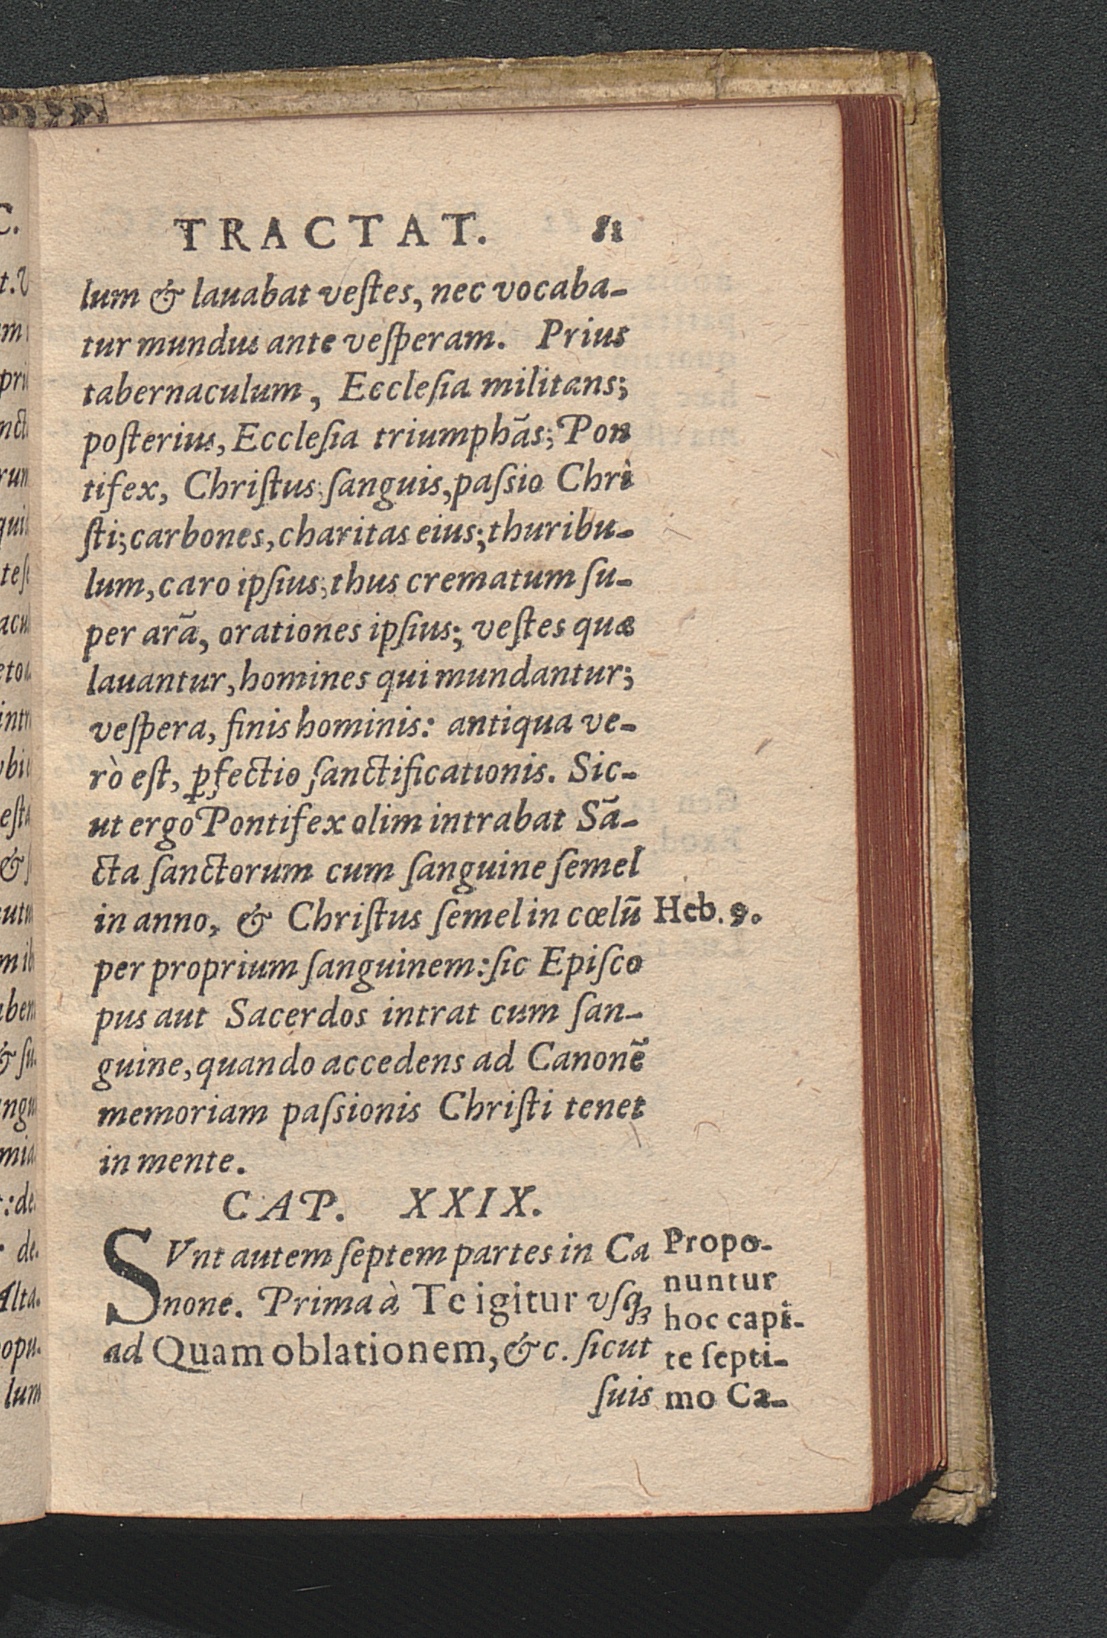 TRACTAT. 81
lum & lauabat veſtes, nec vocaba-
tur mundus ante veſperam. Prius
tabernaculum, Eccleſia militans;
poſterius, Eccleſia triumphãs; Pon
tifex, Chriſtus; ſanguis, paſsio Chri
ſti; carbones, charitas eius; thuribu-
lum, caro ipſius; thus crematum ſu-
per arã, orationes ipſius; veſtes quæ
lauantur, homines qui mundantur;
veſpera, finis hominis: antiqua ve-
rò eſt, ꝑfectio ſanctificationis. Sic-
ut ergo Pontifex olim intrabat Sã-
cta ſanctorum cum ſanguine ſemel
in anno, & Chriſtus ſemel in cœlũ
Heb. 9.
per proprium ſanguinem: ſic Epiſco
pus aut Sacerdos intrat cum ſan-
guine, quando accedens ad Canonẽ
memoriam paſsionis Chriſti tenet
in mente.
CAP. XXIX.
SVnt autem ſeptem partes in Ca
none. Prima à Te igitur vſq;
ad Quam oblationem, &c. ſicut
ſuis
Propo-
nuntur
hoc capi-
te ſepti-
mo Ca-